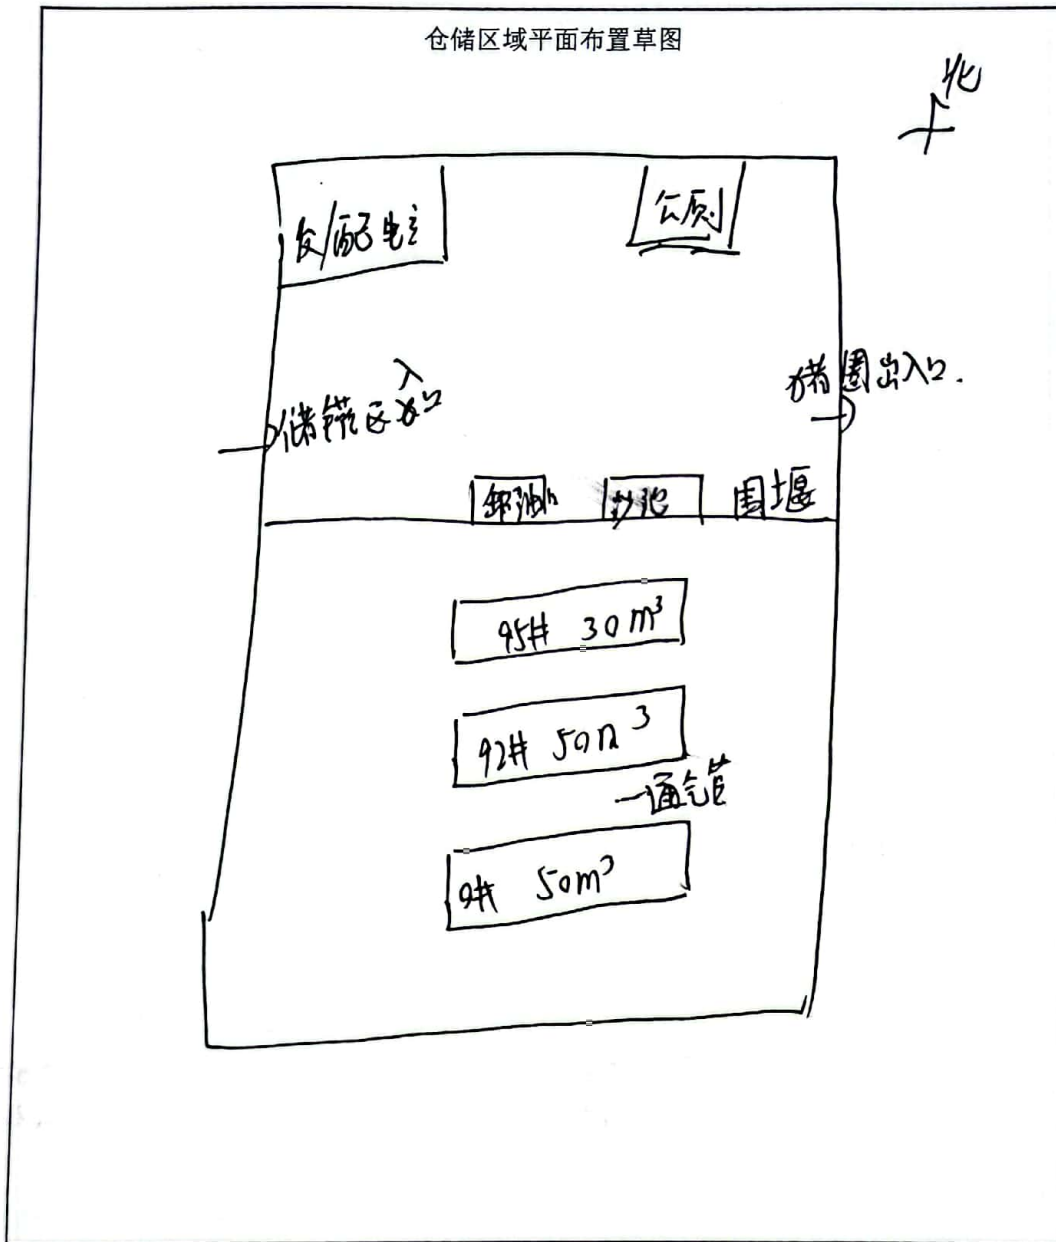 仓储区域平面布置草图
北
发/配电
公厕
储罐区入口
猪圈出入口.
卸油口
沙池
围堰
95# 30m³
92# 50m³
通气管
0# 50m³